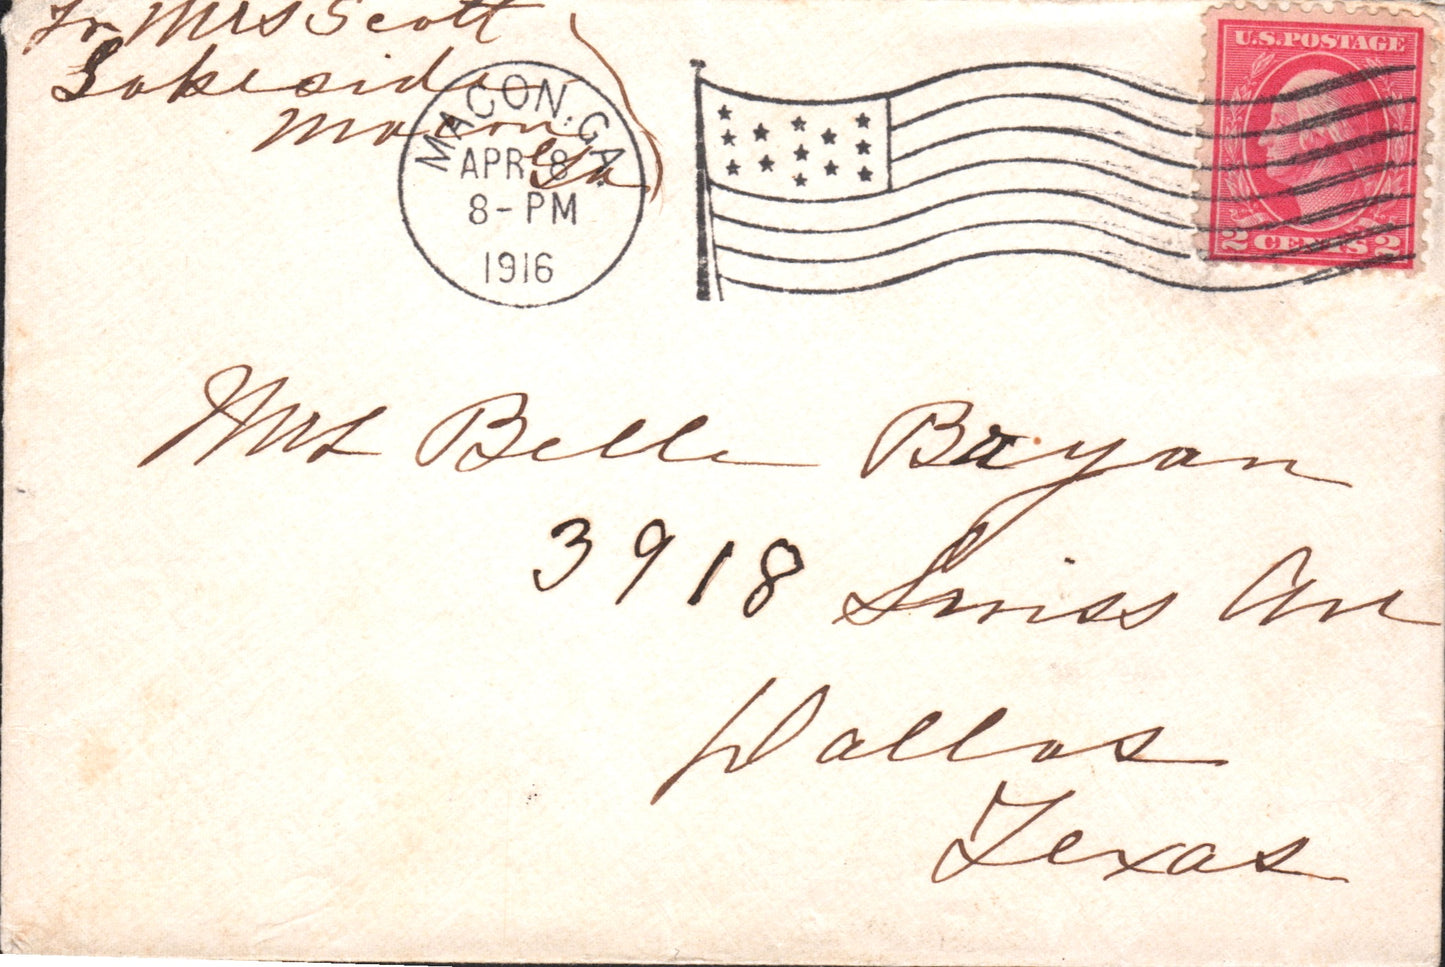 Fr Mrs Scott
Lakeside
Macon
Ga
MACON, GA.
APR 8
8-PM
1916
U.S. POSTAGE
2 CENTS 2
Mrs Belle Bryan
3918 Swiss Ave
Dallas
Texas